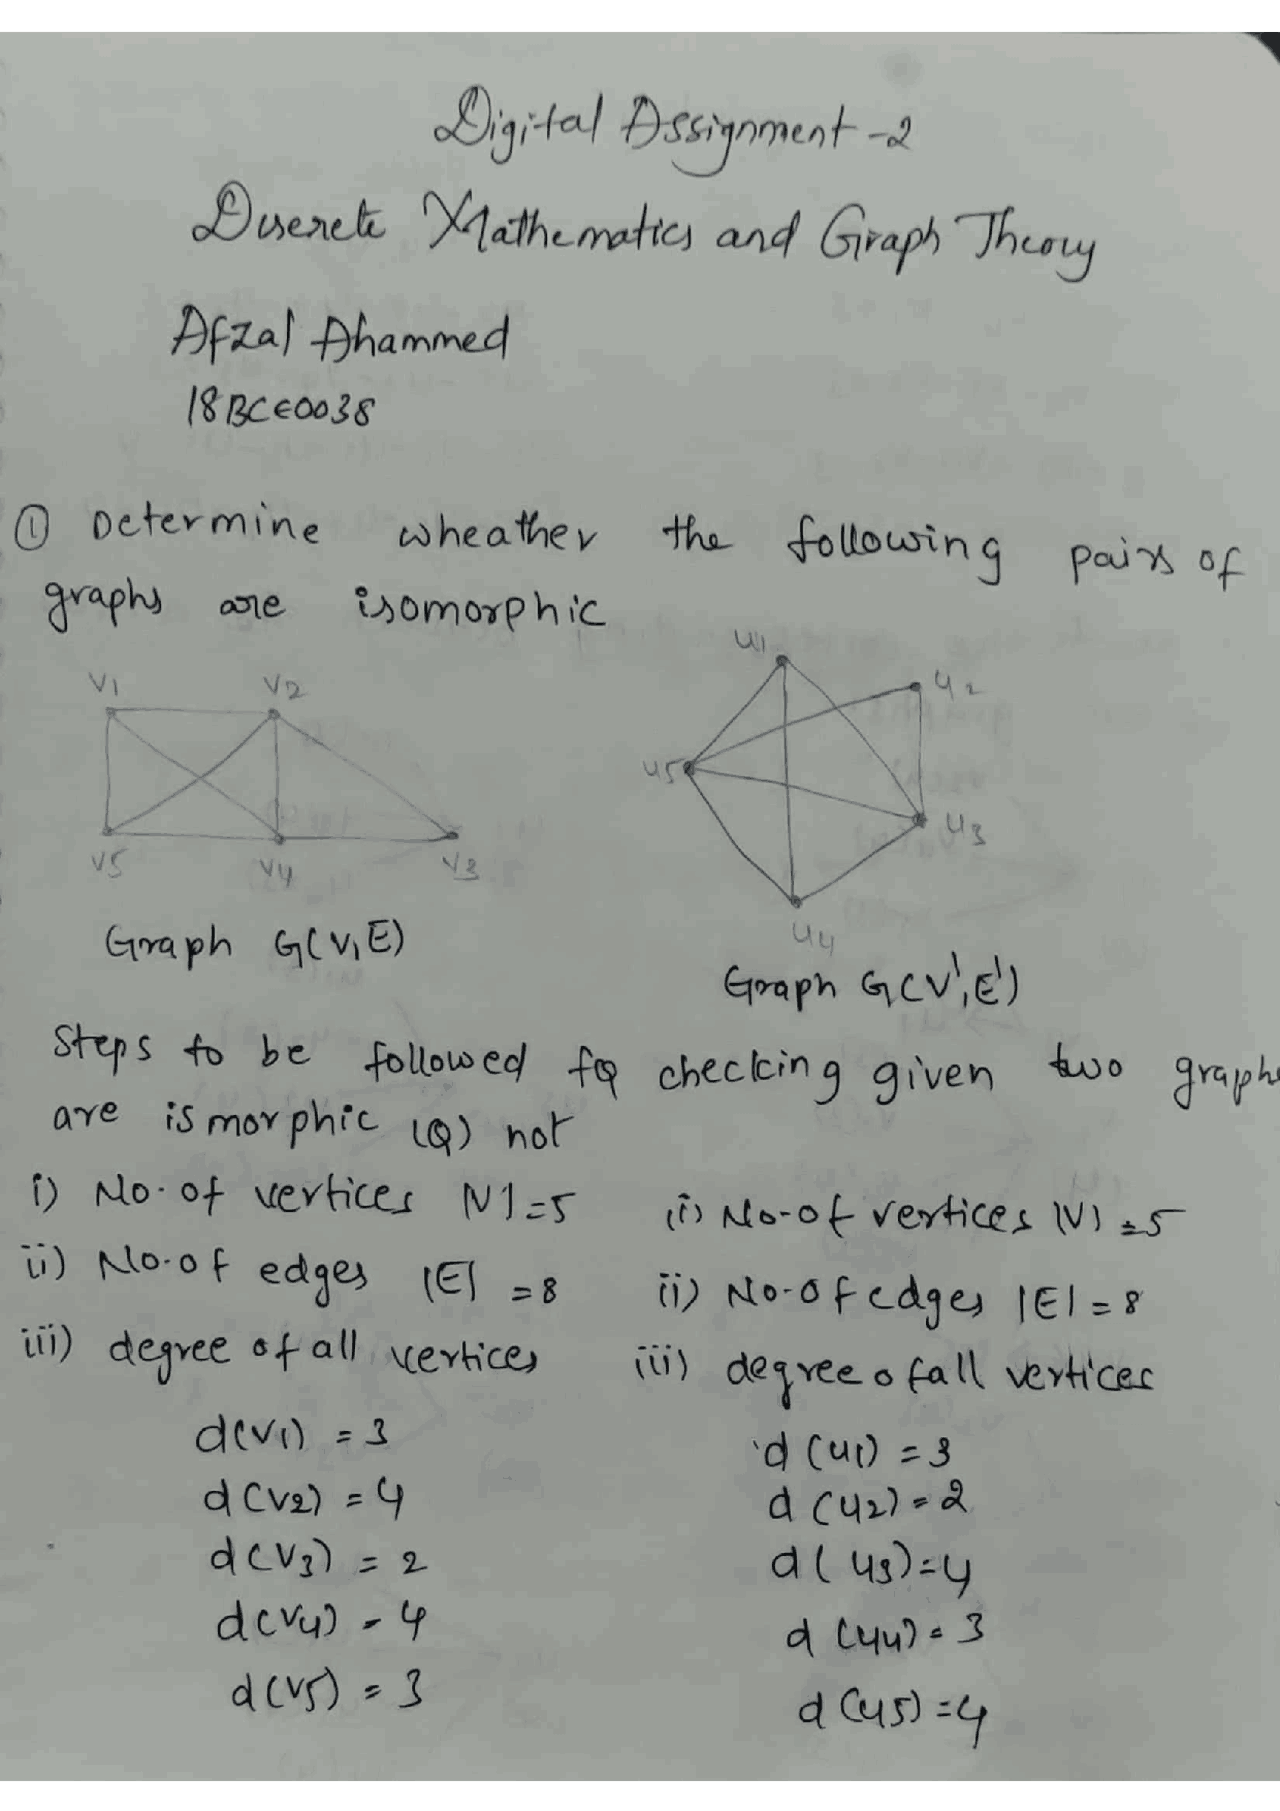 Digital Assignment -2
Discrete Mathematics and Graph Theory
Afzal Ahammed
18BCE0038
① Determine wheather the following pairs of
graphs are isomorphic
V1 V2
V5 V4 V3
u1
u2
u5
u3
u4
Graph G(V,E)
Graph G(V',E')
Steps to be followed for checking given two graphs
are ismorphic (or) not
i) No. of vertices |V|=5
ii) No. of edges |E| = 8
iii) degree of all vertices
d(v1) = 3
d(v2) = 4
d(v3) = 2
d(v4) = 4
d(v5) = 3
(i) No-of vertices |V| = 5
ii) No-of edges |E| = 8
iii) degree of all vertices
d(u1) = 3
d(u2) = 2
d(u3) = 4
d(u4) = 3
d(u5) = 4